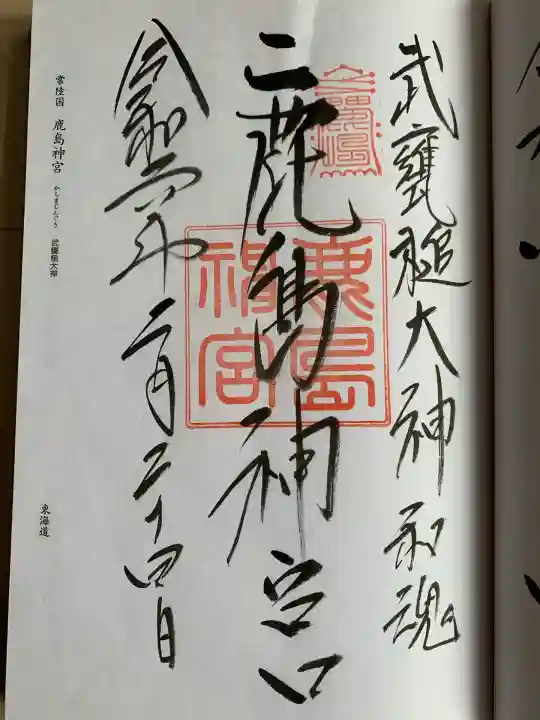 武甕槌大神和魂
二鹿島神宮
鹿島
神宮
令和六年二月二十四日
常陸国 鹿島神宮 かしまじんぐう 武甕槌大神
東海道